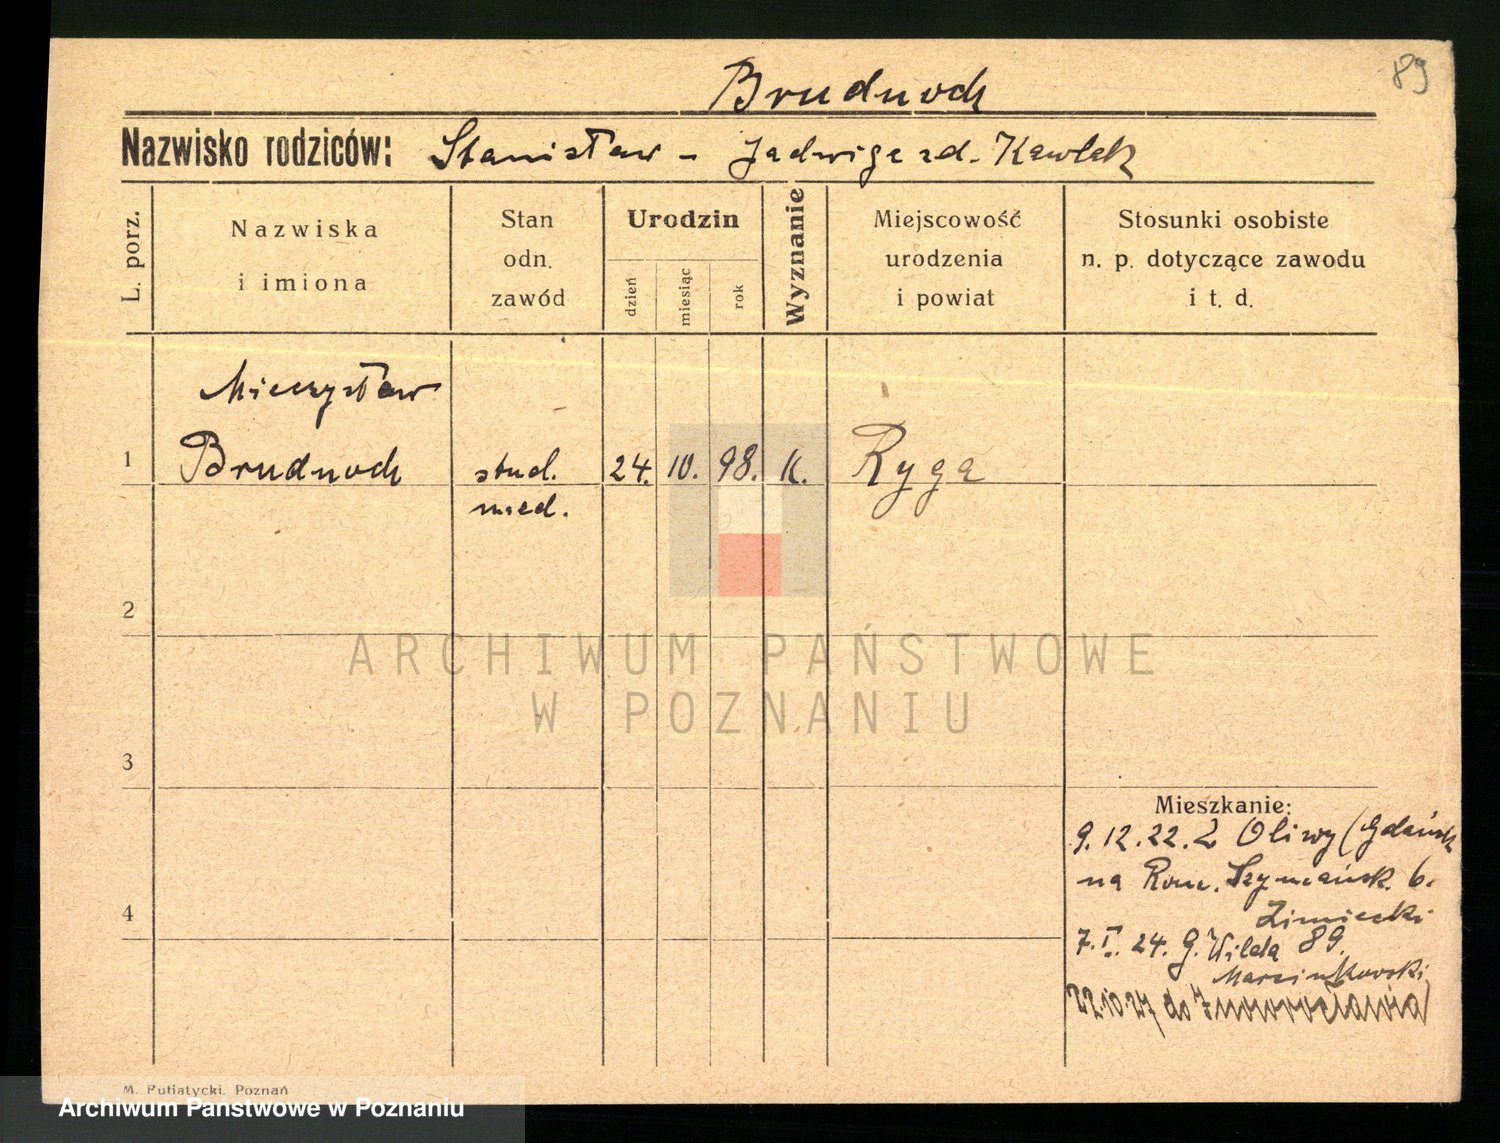 89
Brudnoch
Nazwisko rodziców: Stanisław - Jadwiga zd. Kawlek
L. porz.
Nazwiska
i imiona
Stan
odn.
zawód
Urodzin
dzień
miesiąc
rok
Wyznanie
Miejscowość
urodzenia
i powiat
Stosunki osobiste
n. p. dotyczące zawodu
i t. d.
Mieczysław
1 Brudnoch stud. 24. 10. 98. k. Ryga
med.
2
ARCHIWUM PAŃSTWOWE
W POZNANIU
3
Mieszkanie:
9.12.22. z Oliwy (Gdańsk
na Rom. Szymańsk. 6.
4
7.I. 24. G. Wilda 89.
Marcinkowski
22.10.27 do Inowrocławia
M. Putiatycki, Poznań
Archiwum Państwowe w Poznaniu